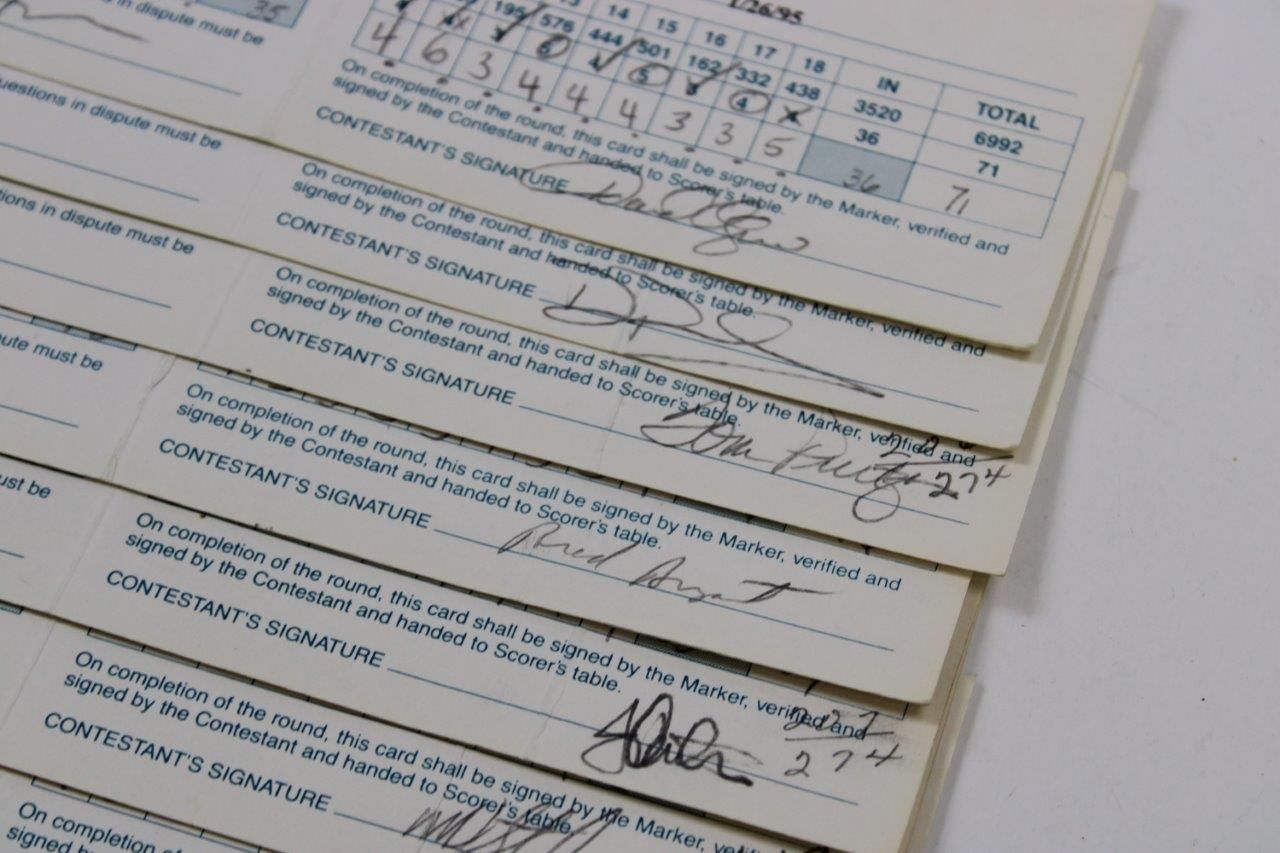 1/26/95
35
13 14 15 16 17 18 IN TOTAL
195 576 444 501 162 332 438 3520 6992
6 4 5 4 36 71
4 6 3 4 4 4 3 3 5 36 71
in dispute must be
On completion of the round, this card shall be signed by the Marker, verified and
signed by the Contestant and handed to Scorer's table.
CONTESTANT'S SIGNATURE
uestions in dispute must be
On completion of the round, this card shall be signed by the Marker, verified and
signed by the Contestant and handed to Scorer's table.
CONTESTANT'S SIGNATURE
ions in dispute must be
On completion of the round, this card shall be signed by the Marker, verified and
signed by the Contestant and handed to Scorer's table.
CONTESTANT'S SIGNATURE Tom
274
ute must be
On completion of the round, this card shall be signed by the Marker, verified and
signed by the Contestant and handed to Scorer's table.
CONTESTANT'S SIGNATURE Brad
ust be
On completion of the round, this card shall be signed by the Marker, verified and
signed by the Contestant and handed to Scorer's table.
CONTESTANT'S SIGNATURE
274
On completion of the round, this card shall be signed by the Marker, ve
signed by the Contestant and handed to Scorer's table.
CONTESTANT'S SIGNATURE
On completion
signed b